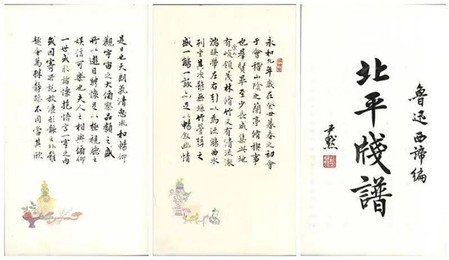 魯迅西諦編
北平牋譜
尹默
永和九年歲在癸丑暮春之初會
于會稽山陰之蘭亭脩禊事
也群賢畢至少長咸集此地
有崇山峻領茂林脩竹又有清流激
湍暎帶左右引以為流觴曲水
列坐其次雖無絲竹管弦之
盛一觴一詠亦足以暢敘幽情
是日也天朗氣清惠風和暢仰
觀宇宙之大俯察品類之盛
所以遊目騁懷足以極視聽之
娛信可樂也夫人之相與俯仰
一世或取諸懷抱悟言一室之內
或因寄所託放浪形骸之外雖
趣舍萬殊靜躁不同當其欣